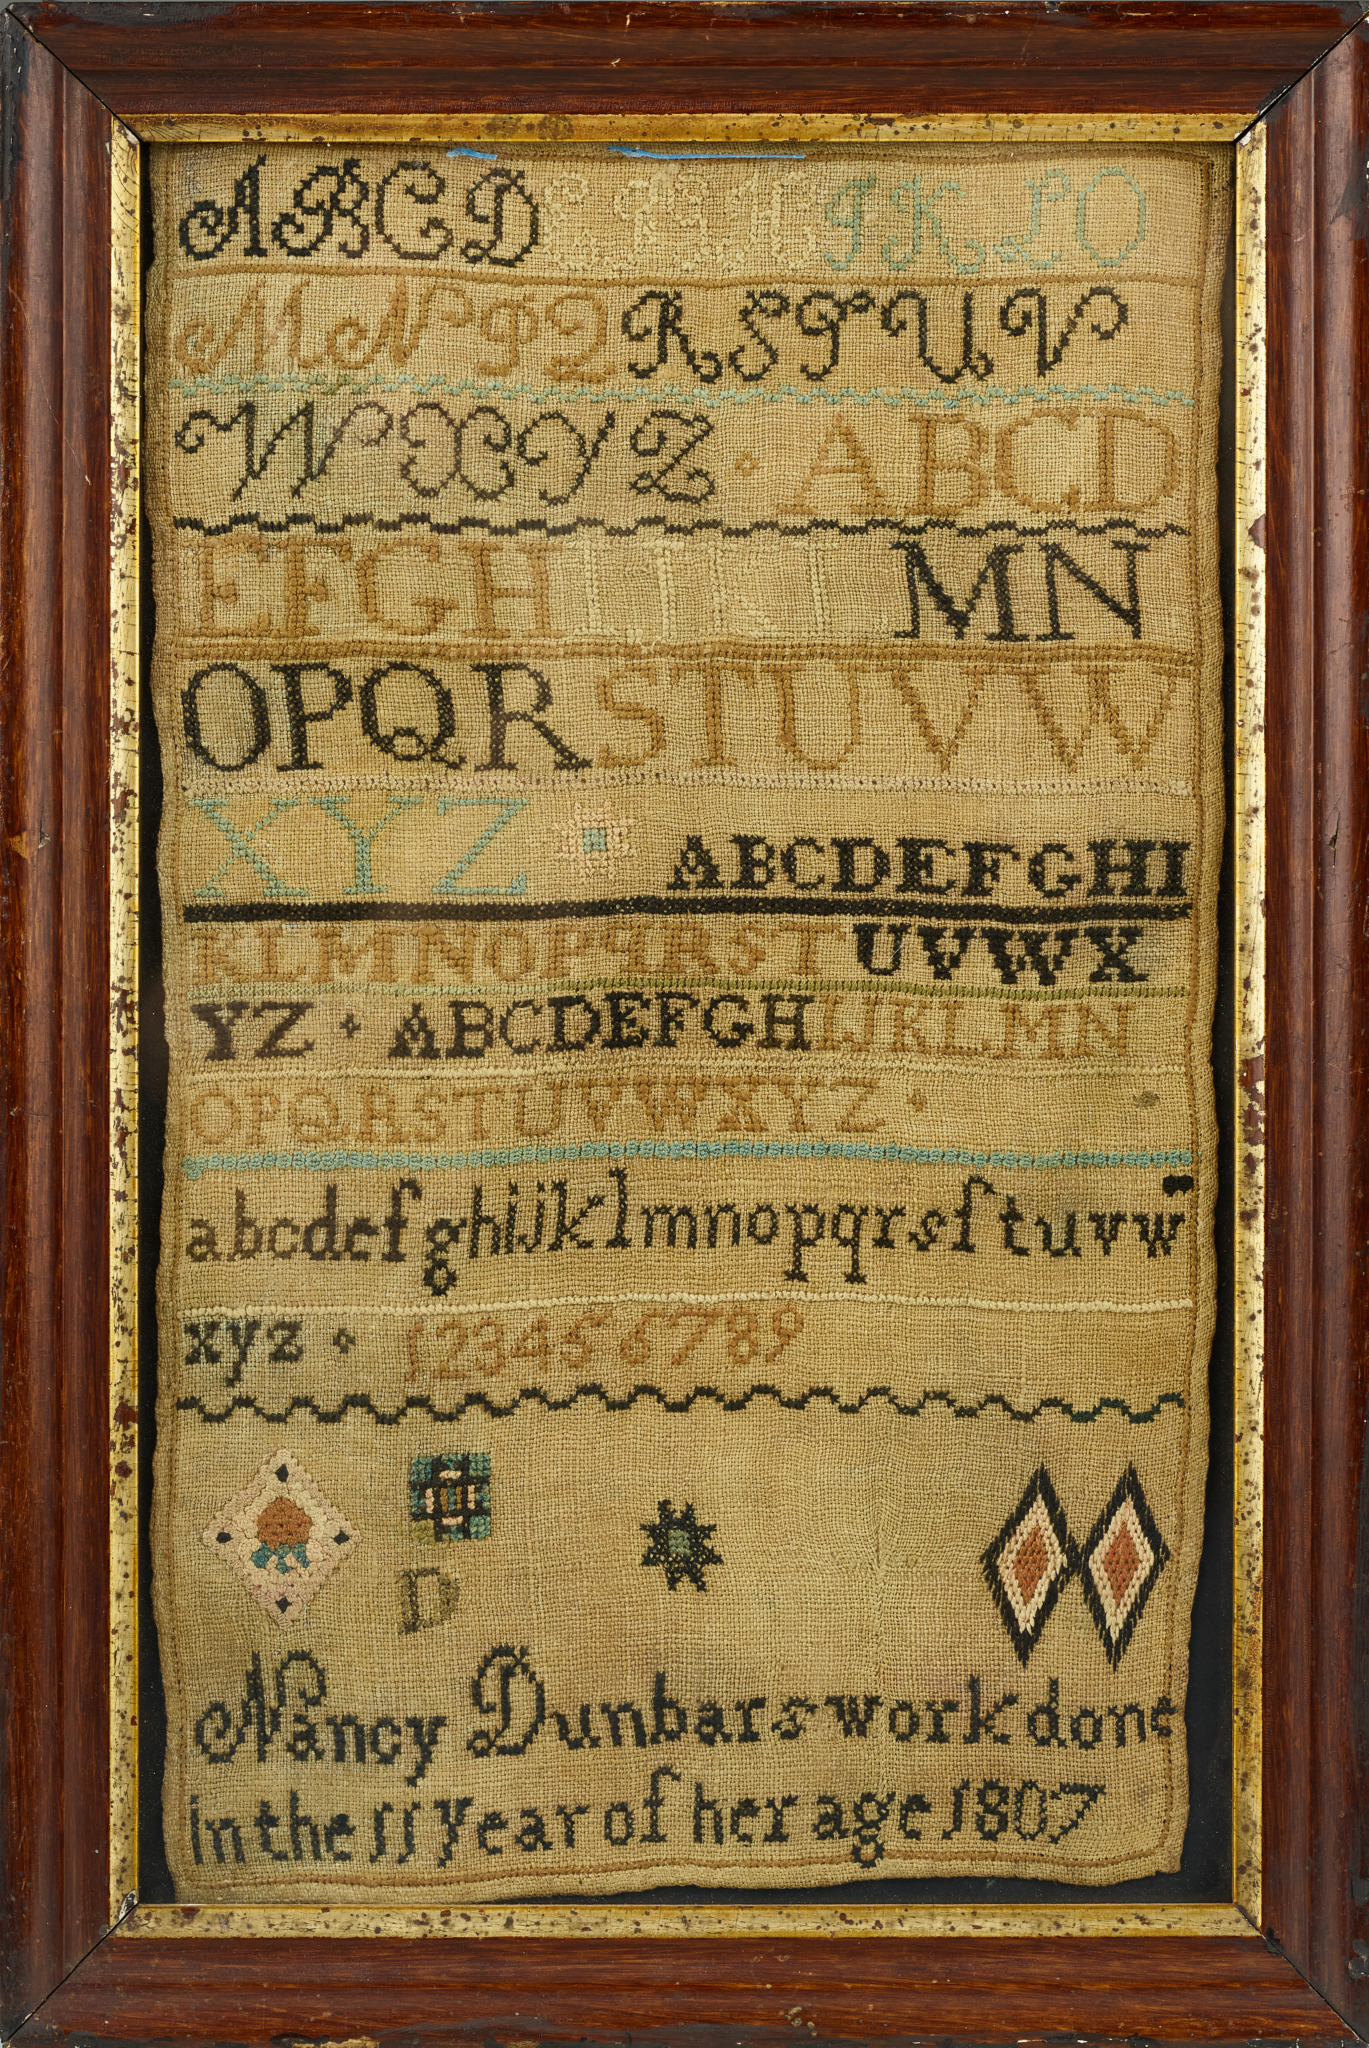 A B C D E F G H I K L O
M N P Q R S T U V
W X Y Z A B C D
E F G H I J K L M N
O P Q R S T U V W
X Y Z A B C D E F G H I
K L M N O P q R S T U V W X
Y Z A B C D E F G H I J K L M N
O P Q R S T U V W X Y Z
a b c d e f g h i j k l m n o p q r s ſ t u v w
x y z 1 2 3 4 5 6 7 8 9
D
Nancy Dunbars work done
in the 11 year of her age 1807